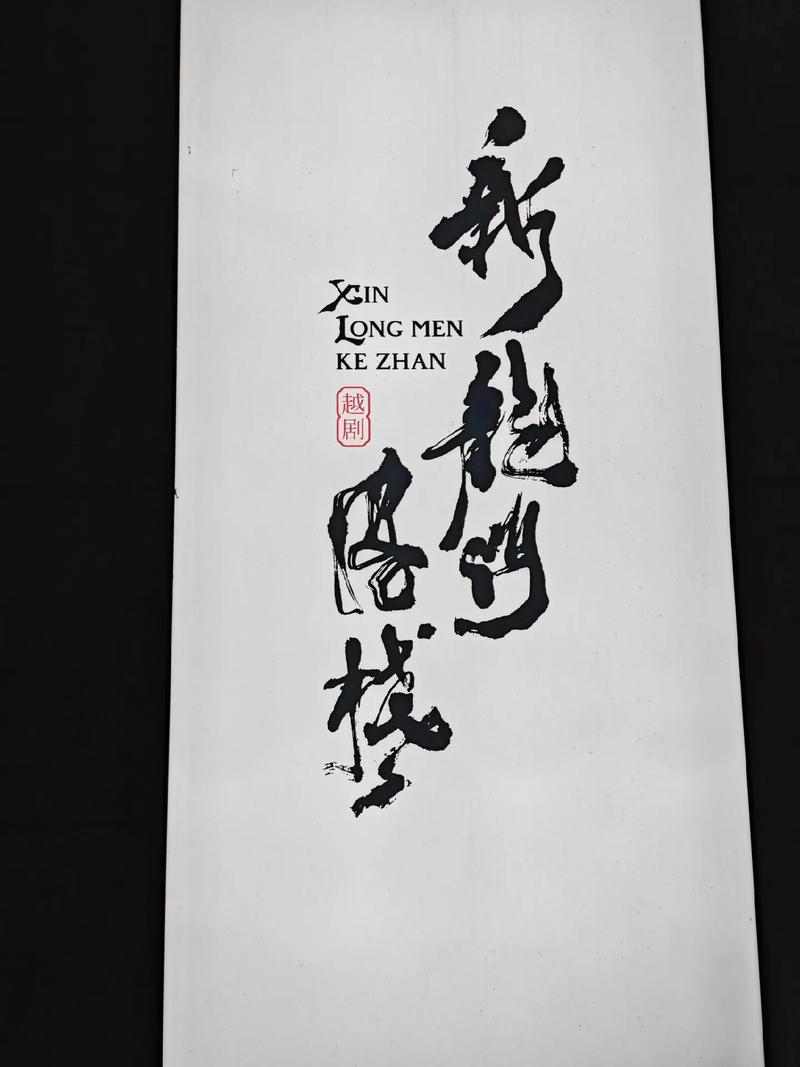 新龍門
客棧
XIN
LONG MEN
KE ZHAN
越
剧